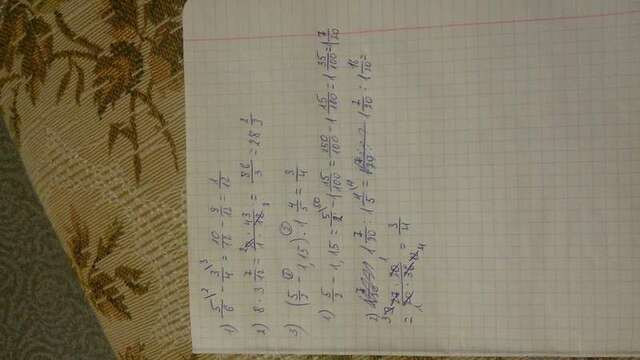 1) 5/6 \2 - 3/4 \3 = 10/12 - 9/12 = 1/12
2) 8 · 3 7/12 = 8 · 43 / 1 · 12 = 86/3 = 28 2/3
3) (5/2 - 1,15) : 1 4/5 = 3/4
1) 5/2 - 1,15 = 5/2 \50 - 1 15/100 = 250/100 - 1 15/100 = 1 35/100 = 1 7/20
2) 1 7/20 : 1 4/5 \4 = 1 7/20 : 1 16/20 =
= 27 · 20 / 20 · 36 = 3/4